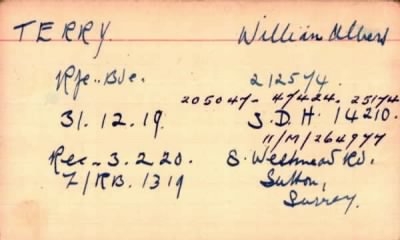 TERRY. William Albert
Rfe. Bde. 212574.
205047- 47424. 25174
31.12.19. S.D.H. 14210.
11/M/264977
Rec - 3.2.20. 8. Westmead Rd.
Z/RB. 1319 Sutton,
Surrey.